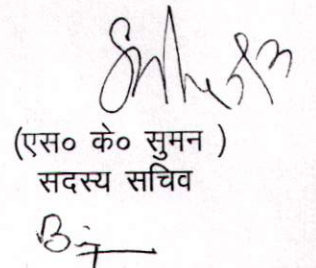 (एस० के० सुमन )
सदस्य सचिव